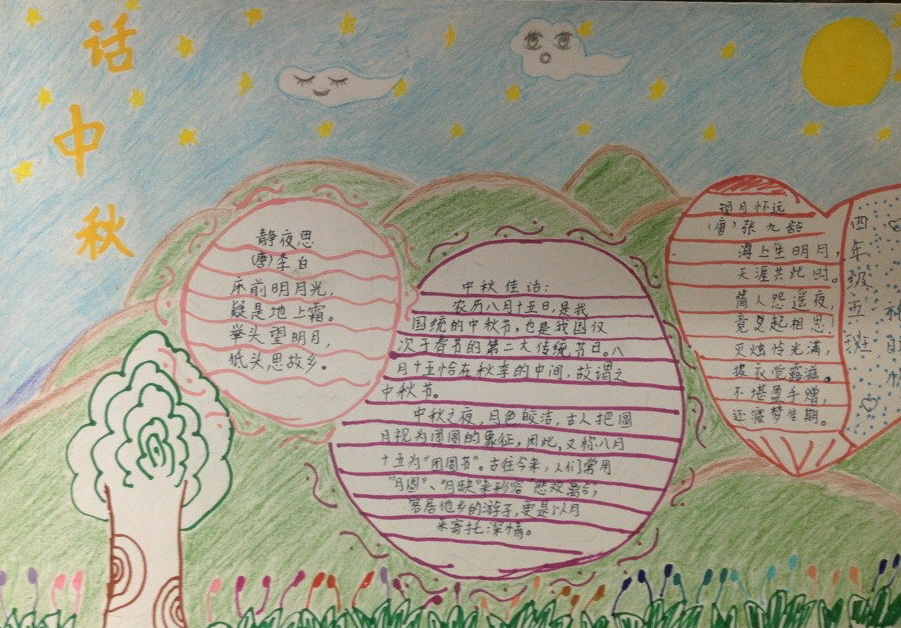 话
中
秋
静夜思
(唐)李白
床前明月光,
疑是地上霜。
举头望明月,
低头思故乡。
中秋佳话:
农历八月十五日,是我
国统的中秋节,也是我国仅
次于春节的第二大传统节日。八
月十五恰在秋季的中间,故谓之
中秋节。
中秋之夜,月色皎洁,古人把圆
月视为团圆的象征,因此,又称八月
十五为"团圆节"。古往今来,人们常用
"月圆"、"月缺"来形容"悲欢离合",
客居他乡的游子,更是以月
来寄托深情。
望月怀远
(唐)张九龄
海上生明月,
天涯共此时。
情人怨遥夜,
竟夕起相思!
灭烛怜光满,
披衣觉露滋。
不堪盈手赠,
还寝梦佳期。
四
年
级
五
班